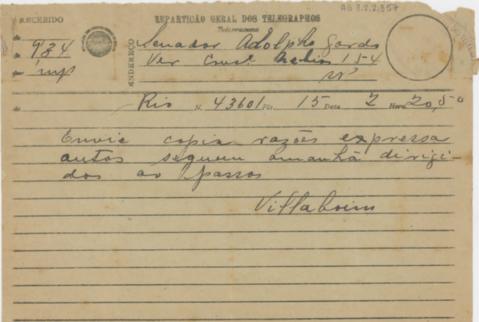 AG 3.2.2.357
RECEBIDO
REPARTIÇÃO GERAL DOS TELEGRAPHOS
Telegramma
934
imp
ENDEREÇO
Senador Adolpho Gordo
154
Rio N. 43601 Pls. 15 Data 2 Hora 20,50
Envie copia razões expressa
autos seguem amanhã dirigi-
dos ao Passos
Villaboim